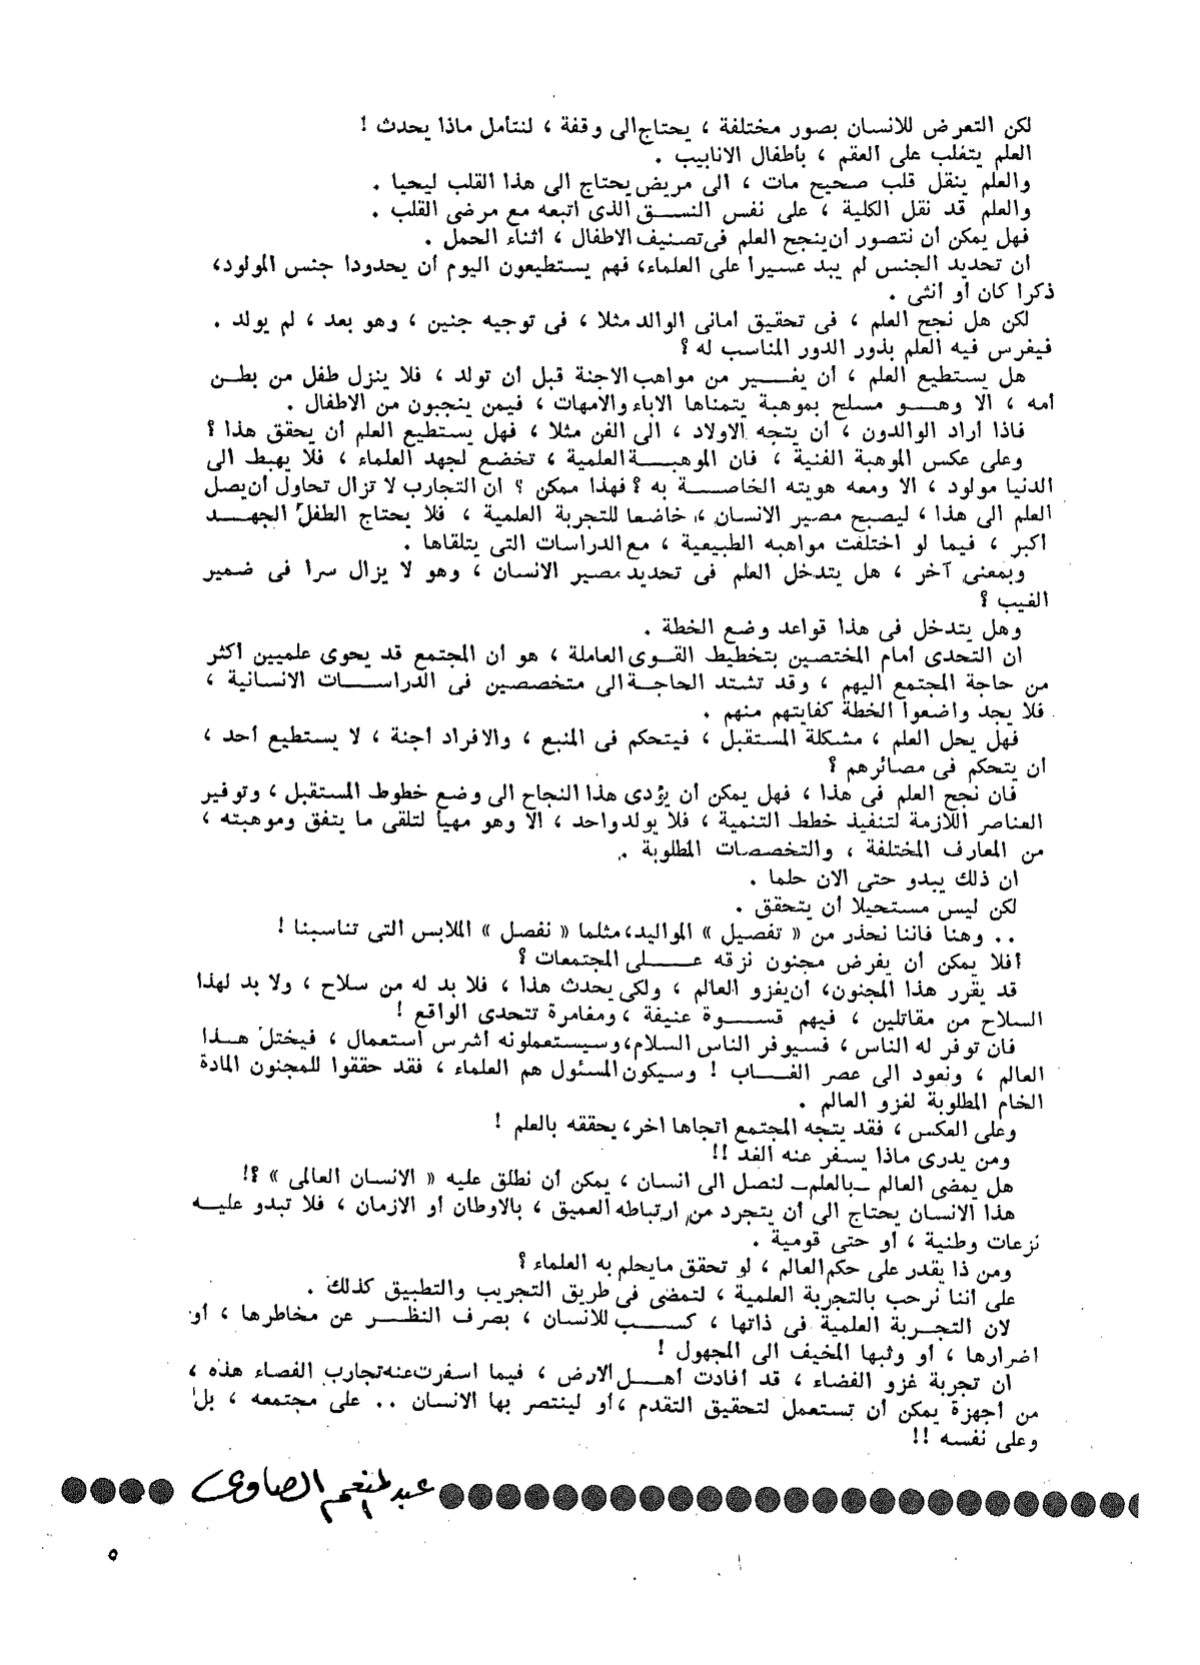 لكن التعرض للانسان بصور مختلفة ، يحتاج الى وقفة ، لنتأمل ماذا يحدث !
العلم يتغلب على العقم ، بأطفال الانابيب .
والعلم ينقل قلب صحيح مات ، الى مريض يحتاج الى هذا القلب ليحيا .
والعلم قد نقل الكلية ، على نفس النســـق الذى اتبعه مع مرضى القلب .
فهل يمكن أن نتصور أن ينجح العلم فى تصنيف الاطفال ، أثناء الحمل .
ان تحديد الجنس لم يبد عسيرا على العلماء، فهم يستطيعون اليوم أن يحددوا جنس المولود،
ذكرا كان أو أنثى .
لكن هل نجح العلم ، فى تحقيق أمانى الوالد مثلا ، فى توجيه جنين ، وهو بعد ، لم يولد .
فيغرس فيه العلم بذور الدور المناسب له ؟
هل يستطيع العلم ، أن يغـــير من مواهب الاجنة قبل أن تولد ، فلا ينزل طفل من بطــن
أمه ، الا وهـــو مسلح بموهبة يتمناها الاباء والامهات ، فيمن ينجبون من الاطفال .
فاذا أراد الوالدون ، أن يتجه الاولاد ، الى الفن مثلا ، فهل يستطيع العلم أن يحقق هذا ؟
وعلى عكس الموهبة الفنية ، فان الموهبـــة العلمية ، تخضع لجهد العلماء ، فلا يهبط الى
الدنيا مولود ، الا ومعه هويته الخاصـــة به ؟ فهذا ممكن ؟ ان التجارب لا تزال تحاول أن يصل
العلم الى هذا ، ليصبح مصير الانسان ، خاضعا للتجربة العلمية ، فلا يحتاج الطفل الجهـــد
أكبر ، فيما لو اختلفت مواهبه الطبيعية ، مع الدراسات التى يتلقاها .
وبمعنى آخر ، هل يتدخل العلم فى تحديد مصير الانسان ، وهو لا يزال سرا فى ضمير
الغيب ؟
وهل يتدخل فى هذا قواعد وضع الخطة .
ان التحدى أمام المختصين بتخطيط القـــوى العاملة ، هو أن المجتمع قد يحوى علميين أكثر
من حاجة المجتمع اليهم ، وقد تشتد الحاجـــة الى متخصصين فى الدراســـات الانسانية ،
فلا يجد واضعوا الخطة كفايتهم منهم .
فهل يحل العلم ، مشكلة المستقبل ، فيتحكم فى المنبع ، والافراد أجنة ، لا يستطيع أحد ،
أن يتحكم فى مصائرهم ؟
فان نجح العلم فى هذا ، فهل يمكن أن يؤدى هذا النجاح الى وضع خطوط المستقبل ، وتوفير
العناصر اللازمة لتنفيذ خطط التنمية ، فلا يولد واحد ، الا وهو مهيأ لتلقى ما يتفق وموهبته ،
من المعارف المختلفة ، والتخصصات المطلوبة .
ان ذلك يبدو حتى الان حلما .
لكن ليس مستحيلا أن يتحقق .
.. وهنا فاننا نحذر من « تفصيل » المواليد، مثلما « نفصل » الملابس التى تناسبنا !
أفلا يمكن أن يفرض مجنون نزقه عـــلى المجتمعات ؟
قد يقرر هذا المجنون، أن يغزو العالم ، ولكى يحدث هذا ، فلا بد له من سلاح ، ولا بد لهذا
السلاح من مقاتلين ، فيهم قســـوة عنيفة ، ومغامرة تتحدى الواقع !
فان توفر له الناس ، فسيوفر الناس السلام، وسيستعملونه أشرس استعمال ، فيختل هـــذا
العالم ، ونعود الى عصر الغـــاب ! وسيكون المسئول هم العلماء ، فقد حققوا للمجنون المادة
الخام المطلوبة لغزو العالم .
وعلى العكس ، فقد يتجه المجتمع اتجاها آخر، يحققه بالعلم !
ومن يدرى ماذا يسفر عنه الغد !!
هل يمضى العالم ــ بالعلم ــ لنصل الى انسان ، يمكن أن نطلق عليه « الانسان العالمى » ؟!
هذا الانسان يحتاج الى أن يتجرد من ارتباطه العميق ، بالاوطان أو الازمان ، فلا تبدو عليـــه
نزعات وطنية ، أو حتى قومية .
ومن ذا يقدر على حكم العالم ، لو تحقق مايحلم به العلماء ؟
على أننا نرحب بالتجربة العلمية ، لتمضى فى طريق التجريب والتطبيق كذلك .
لان التجـــربة العلمية فى ذاتها ، كســـب للانسان ، بصرف النظـــر عن مخاطرها ، أو
اضرارها ، أو وثبها المخيف الى المجهول !
ان تجربة غزو الفضاء ، قد أفادت أهـــل الارض ، فيما أسفرت عنه تجارب الفضاء هذه ،
من أجهزة يمكن أن تستعمل لتحقيق التقدم ، أو لينتصر بها الانسان .. على مجتمعه ، بل
وعلى نفسه !!
عبد المنعم الصاوى
٥